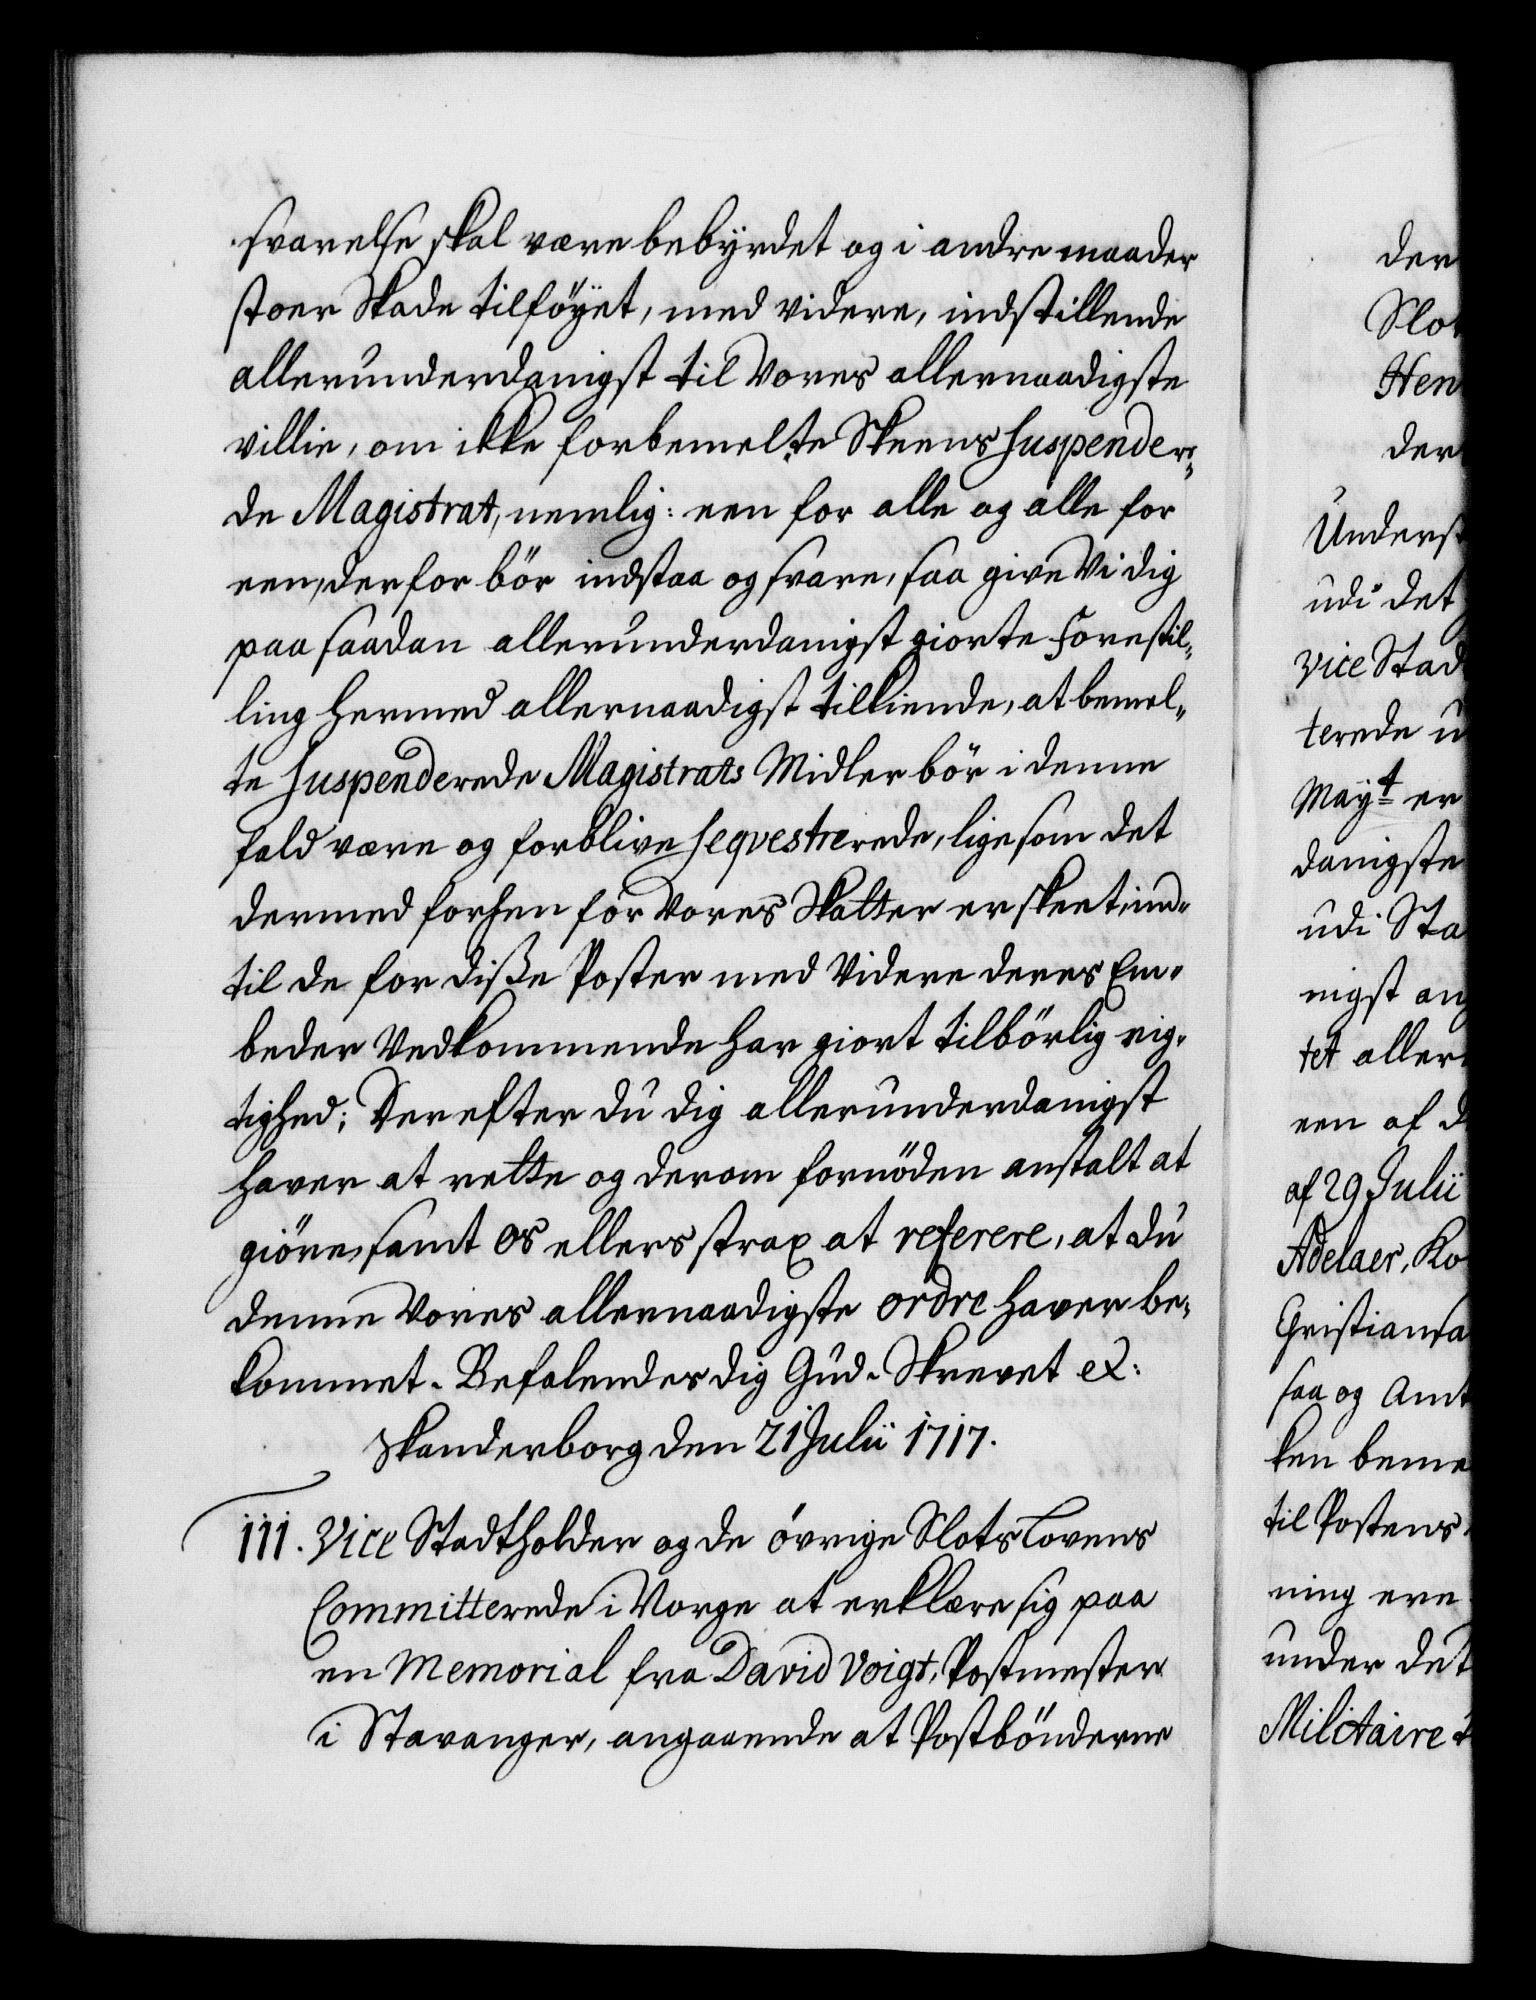 svarelse skal være bebyrdet og i andre maader
stoer Skade tilföyet, med videre, indstillende
allerunderdanigst til Vores allernaadigste
villie, om ikke forbemelte Skeens Suspender,,
de Magistrat, nemlig: een for alle og alle for
een, derfor bör indstaa og svare, saa give Vi dig
paa saadan allerunderdanigst giorte Forestil,,
ling hermed allernaadigst tilkiende, at bemel,,
te Suspenderede Magistrats Midler bör i denne
fald være og forblive Seqvestrerede, ligesom det
dermed forhen for Vores Skatter er skeet, ind,,
til de for diße Poster med Videre deres Em,,
beder Vedkommende har giort tilbörlig rig,,
tighed; Derefter du dig allerunderdanigst
haver at rette og derom fornöden anstalt at
giöre, samt os ellers strax at referere, at du
denne Vores allernaadigste ordre haver be,,
kommet. Befalendes dig Gud. Skrevet ex:
Skanderborg den 21 Julii 1717.
111. Vice Stadtholder og de övrige Slots Lovens
Committerede i Norge at erklære sig paa
en Memorial fra David Voigt, Postmester
i Stavanger, angaaende at Postbönderne
der
Slot
Hen
der
Underst
udi det
vice Stad
terede u
Mayt er
danigste
udi Sta
nigst ang
tet aller
een af d
af 29 Julii
Adelaer, Ko
Christiansa
saa og Amt
ken beme
til Postens
ning ere
under det
Militaire